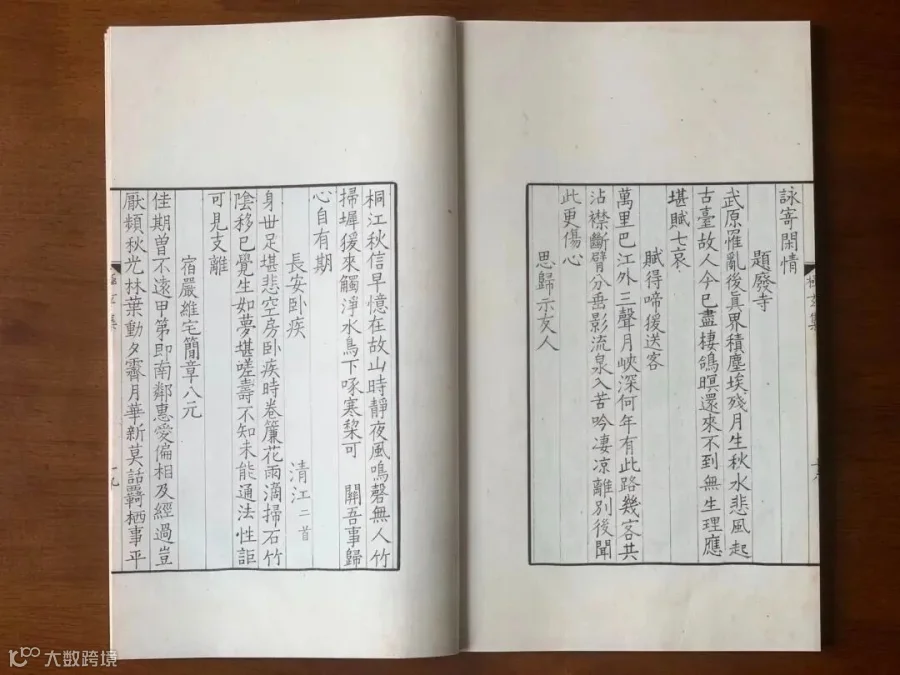 詠寄閑情
題廢寺
武原罹亂後眞界積塵埃殘月生秋水悲風起
古臺故人今已盡棲鴿暝還來不到無生理應
堪賦七哀
賦得啼猨送客
萬里巴江外三聲月峽深何年有此路幾客共
沾襟斷臂分垂影流泉入苦吟凄凉離別後聞
此更傷心
思歸示友人
桐江秋信早憶在故山時靜夜風鳴磬無人竹
掃墀猨來觸淨水鳥下啄寒棃可 關吾事歸
心自有期
長安卧疾 清江二首
身世足堪悲空房卧疾時卷簾花雨滴掃石竹
陰移已覺生如夢堪嗟壽不知未能通法性詎
可見支離
宿嚴維宅簡章八元
佳期曾不遠甲第即南鄰惠愛偏相及經過豈
厭頻秋光林葉動夕霽月華新莫話羇栖事平
大数跨境